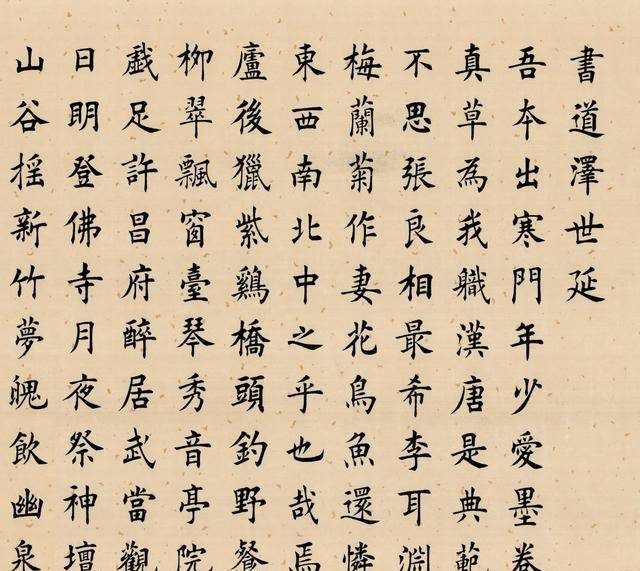 書道澤世延
吾本出寒門年少愛墨卷
真草為我職漢唐是典範
不思張良相最希李耳淵
梅蘭菊作妻花鳥魚還憐
東西南北中之乎也哉焉
廬後獵紫鷄橋頭釣野餐
柳翠飄窗臺琴秀音亭院
戲足許昌府醉居武當觀
日明登佛寺月夜祭神壇
山谷摇新竹夢魄飲幽泉